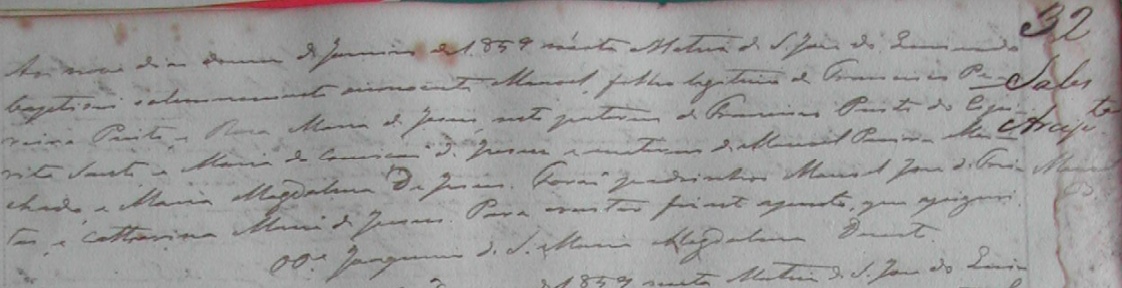 32
Aos nove dias do mez de Janeiro de 1859 nésta Matriz de S. Jose do
baptisou solemnemente innocente Manoel, filho legitimo de Francisco Pe-
reira Pinto, e Rosa Maria de Jesus, neto paterno de Francisco Pinto do Espi-
rito Santo e Maria da Conceicaõ de Jesus e materno de Manoel Pereira Ma-
chado, e Maria Magdalena De Jesus. Foraõ padrinhos Manoel Jose de Frei-
tas, e Catharina Maria de Jesus. Para constar fiz este assento, que assignei.
O Pe. Joaquim de S. Maria Magdalena Duart.
Sales
Manoel
de 1859 nesta Matriz de S. Jose do